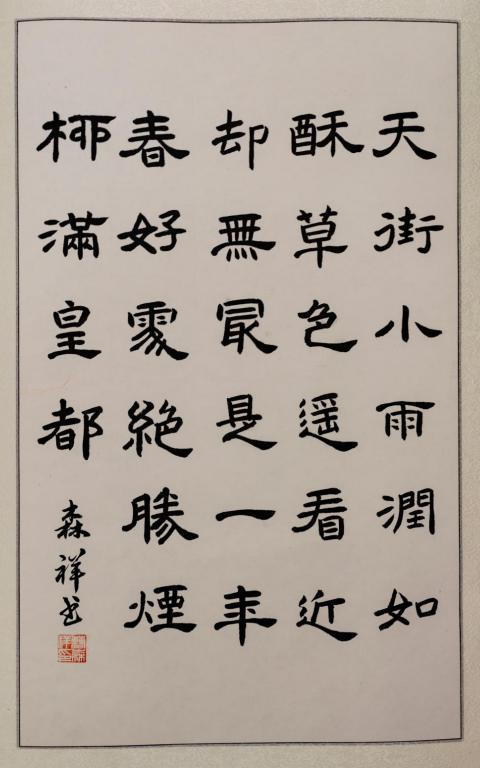 天街小雨潤如
酥草色遥看近
却無冣是一年
春好處絕勝煙
柳滿皇都
森祥书